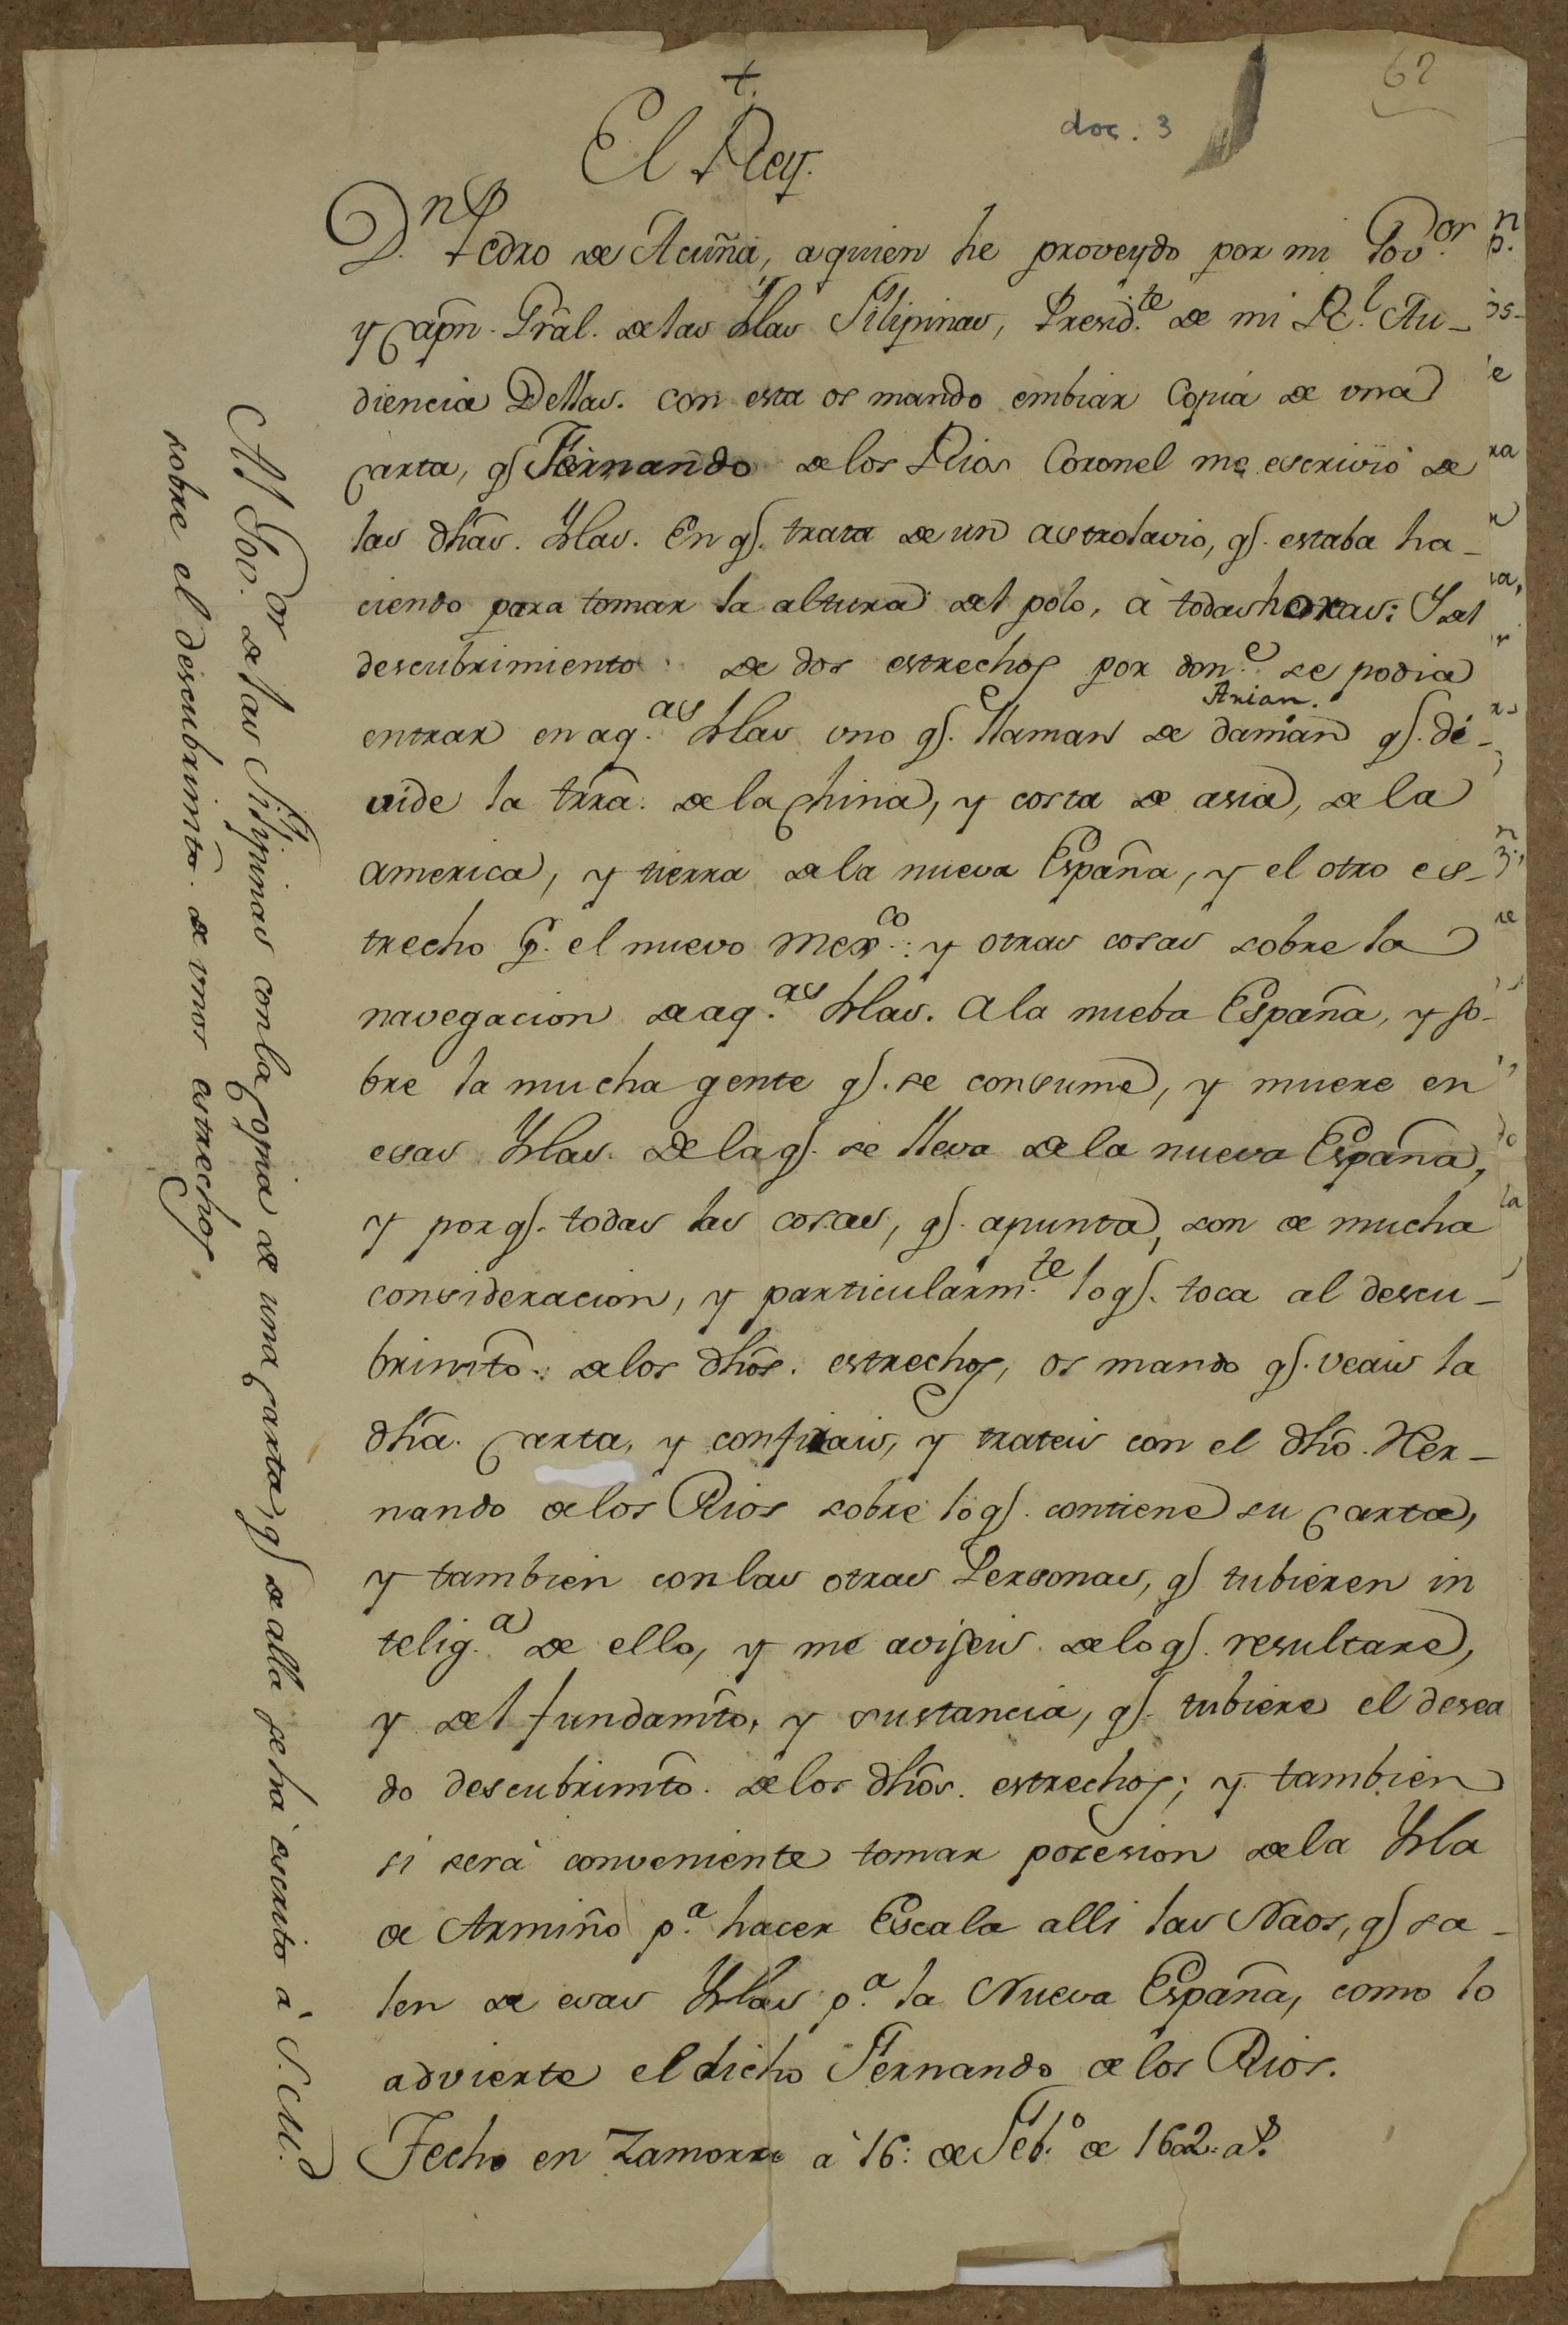 62
doc. 3
+
El Rey.
D.n Pedro de Acuña, a quien he proveydo por mi Gov.or
y Capn. Gràl. de las Yslas Filipinas, Presid.te de mi Rl. Au-
diencia Dellas. con esta os mando embiar Copia de una
carta, q. Fernando de los Rios Coronel me escrivio de
las dhas. Yslas. En q. trata de un astrolavio, q. estaba ha-
ciendo para tomar la altura del polo, à todas horas: Y del
descubrimiento de dos estrechos por don.e se podia
Anian.
entrar en aq.as Yslas uno q. llaman de daman q. di-
vide la trra. de la china, y costa de asia, de la
america, y tierra de la nueva España, y el otro es-
trecho p. el nuevo mex.co: y otras cosas sobre la
navegacion de aq.as Yslas. a la nueba España, y so-
bre la mucha gente q. se consume, y muere en
esas Yslas. De la q. se lleva de la nueva España,
y por q. todas las cosas, q. apunta, son de mucha
consideracion, y particularm.te lo q. toca al descu-
brimto. de los dhos. estrechos, os mando q. veais la
dha. carta, y confirais, y trateis con el dho. Her-
nando de los Rios sobre lo q. contiene su carta,
y tambien con las otras Personas, q. tubieren in
telig.a de ello, y me aviseis de lo q. resultare,
y del fundamto, y sustancia, q. tubiere el desea
do descubrimto. de los dhos. estrechos; y tambien
si serà conveniente tomar posesion de la Ysla
de Armiño p.a hacer Escala alli las Naos, q. sa-
len de esas Yslas p.a la Nueva España, como lo
advierte el dicho Fernando de los Rios.
Fecho en Zamorra à 16: de Feb.o de 1602. a.s
Al Gov.or de las Filipinas con la Copia de una carta, q. de alla se ha escrito à S. M.d
sobre el discubrimto. de unos estrechos.